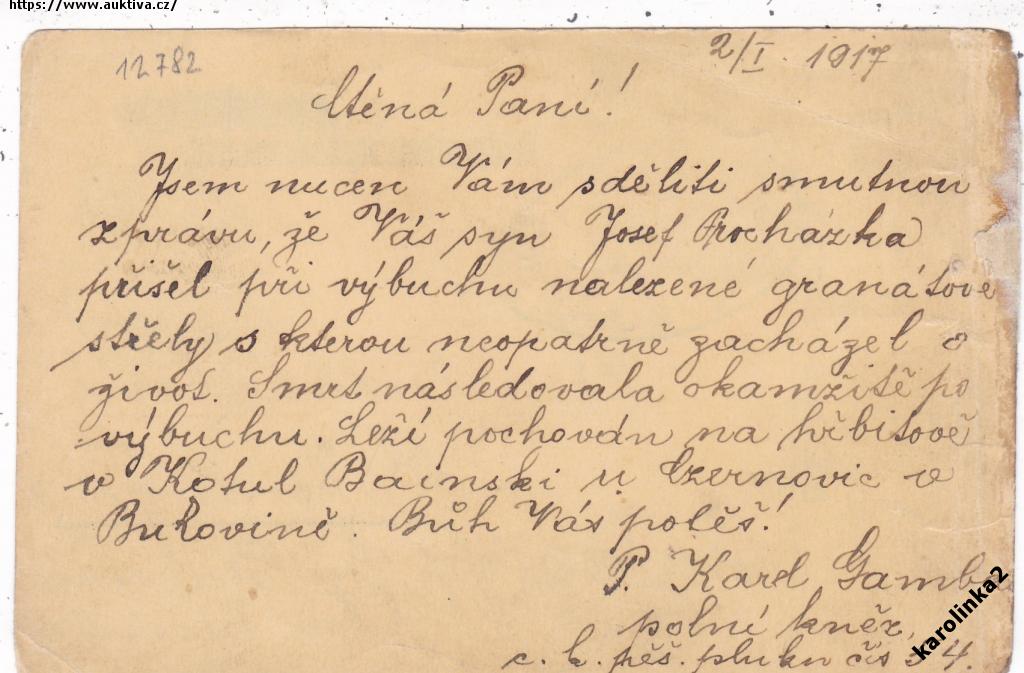 https://www.auktiva.cz/
12782
2/I. 1917
Ctěná Paní!
Jsem nucen Vám sděliti smutnou
zprávu, že Váš syn Josef Procházka
přišel při výbuchu nalezené granátové
střely s kterou neopatrně zacházel o
život. Smrt následovala okamžitě po
výbuchu. Leží pochován na hřbitově
v Kotul Bainski u Czernovic v
Bukovině. Bůh Vás potěš!
P. Karel
polní kněz,
c. k. pěš. pluku čís 54.
karolinka2